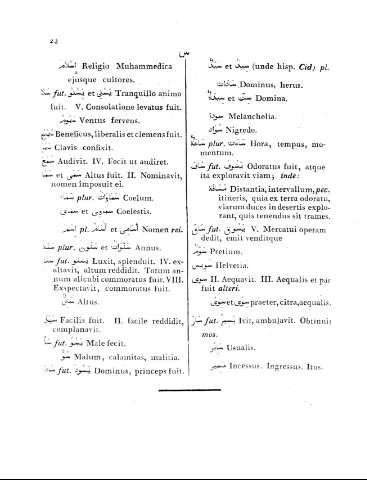 22
س
اسلام Religio Muhammedica
ejusque cultores.
سلا fut. يسلو et يسلى Tranquillo animo
fuit. V. Consolatione levatus fuit.
سموم Ventus fervens.
سمح Beneficus, liberalis et clemens fuit.
سمر Clavis confixit.
سمع Audivit. IV. Fecit ut audiret.
سما et سمى Altus fuit. II. Nominavit,
nomen imposuit ei.
سماء plur. سماوات Coelum.
سماوى et سمائى Coelestis.
اسم pl. اسماء et اسامى Nomen rei.
سنة plur. سنون et سنوات Annus.
سنا fut. يسنو Luxit, splenduit. IV. ex-
altavit, altum reddidit. Totum an-
num alicubi commoratus fuit. VIII.
Exspectavit, commoratus fuit.
سنى Altus.
سهل Facilis fuit. II. facile reddidit,
complanavit.
ساء fut. يسوء Male fecit.
سوء Malum, calamitas, malitia.
ساد fut. يسود Dominus, princeps fuit.
سيد et سيد (unde hisp. Cid) pl.
سادات Dominus, herus.
سيدة et ست Domina.
سودا Melancholia.
سواد Nigredo.
ساعة plur. ساعات Hora, tempus, mo-
mentum.
ساف fut. يسوف Odoratus fuit, atque
ita exploravit viam; inde:
مسافة Distantia, intervallum, pec.
itineris, quia ex terra odoratu,
viarum duces in desertis explo-
rant, quis tenendus sit trames.
ساق fut. يسوق V. Mercatui operam
dedit, emit venditque
سوم Pretium.
سويس Helvetia.
سوى II. Aequavit. III. Aequalis et par
fuit alteri.
سوى et سوى praeter, citra, aequalis.
سار fut. يسير Ivit, ambulavit. Obtinuit
mos.
ساير Usualis.
مسير Incessus. Ingressus. Itus.